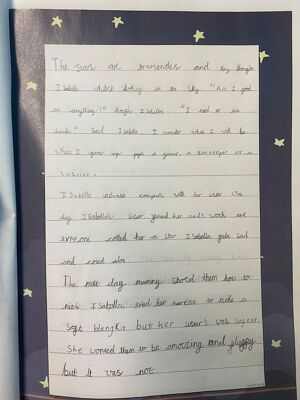 The stars are tramendes and big thought
Isabella whilst looking at the sky. "Am I good
at anything!" thought Isabella. "I need to
" Said Isabella. I wonder what I will be
when I grow up a a zoo keeper or a

ISabella allways compairs with her sister. One
day ISabella's sister joined her and's work and
everyone called her a star ISabella felt sad
and cried alot.
The next day mummy showed them how to
ISabella tried her hardest to make a
Soft blangKit but her sister's was softer
She wanted them to be amaizing and
but it was not.